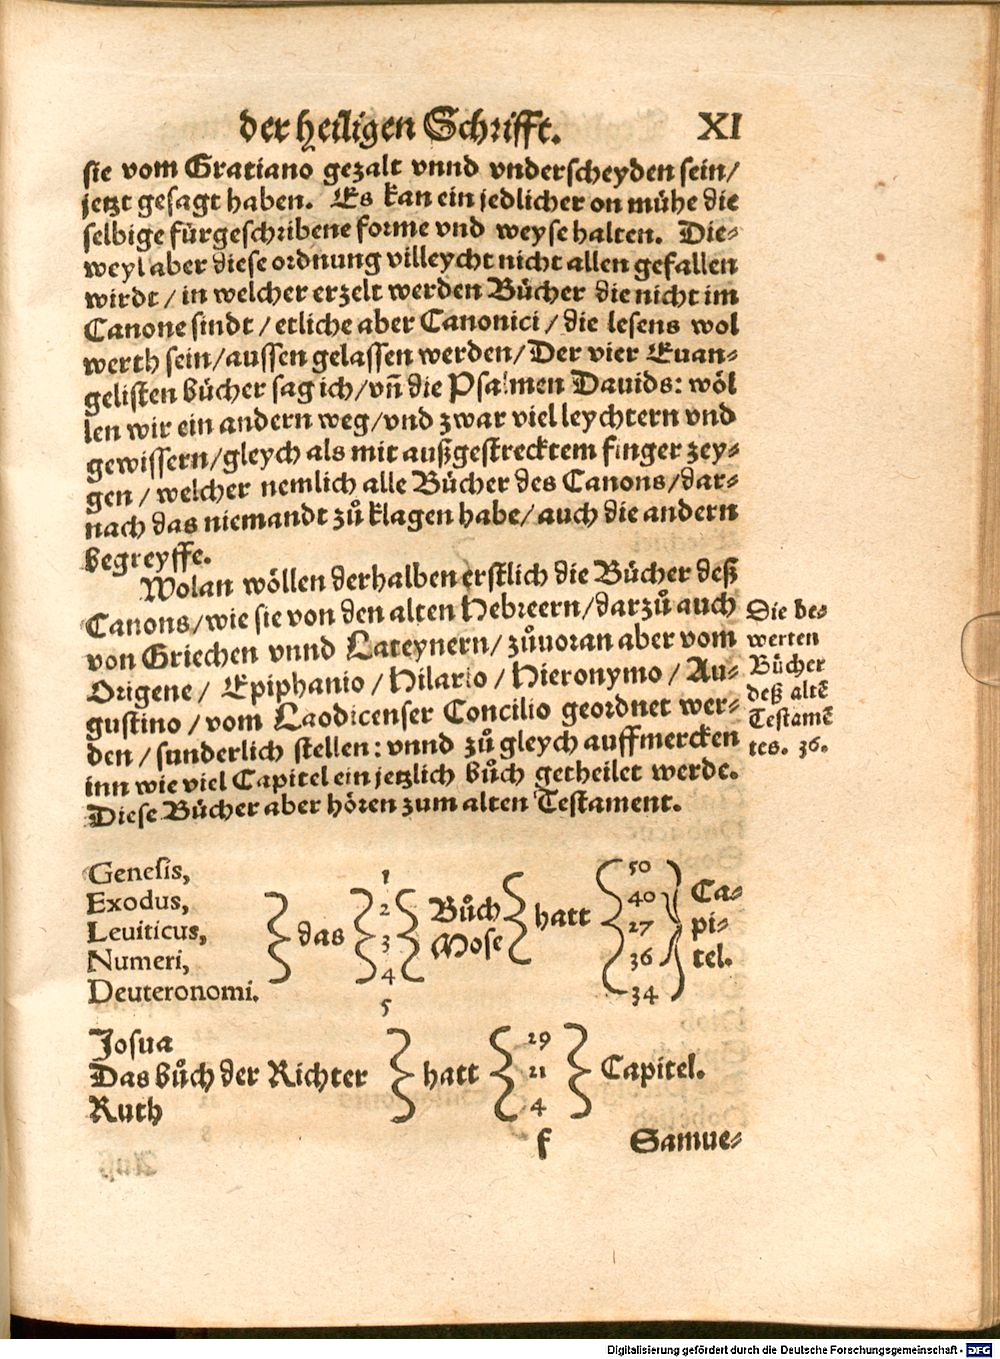 der heiligen Schrifft. XI
sie vom Gratiano gezalt vnnd vnderscheyden sein/
jetzt gesagt haben. Es kan ein jedlicher on mühe die
selbige fürgeschribene forme vnd weyse halten. Die-
weyl aber diese ordnung villeycht nicht allen gefallen
wirdt / in welcher erzelt werden Bücher die nicht im
Canone sindt / etliche aber Canonici / die lesens wol
werth sein/aussen gelassen werden/Der vier Euan-
gelisten bücher sag ich/vñ die Psalmen Dauids: wöl
len wir ein andern weg/vnd zwar viel leychtern vnd
gewissern/gleych als mit außgestrecktem finger zey-
gen / welcher nemlich alle Bücher des Canons/dar-
nach das niemandt zů klagen habe/ auch die andern
begreyffe.
Wolan wöllen derhalben erstlich die Bücher deß
Canons/wie sie von den alten Hebreern/darzů auch
von Griechen vnnd Lateynern/ zůuoran aber vom
Origene / Epiphanio / Hilario / Hieronymo / Au-
gustino / vom Laodicenser Concilio geordnet wer-
den / sunderlich stellen: vnnd zů gleych auffmercken
inn wie viel Capitel ein jetzlich bůch getheilet werde.
Diese Bücher aber hören zum alten Testament.
Die be-
werten
Bücher
deß altē
Testamē
tes. 36.
Genesis, 1 50
Exodus, 2 40
Leuiticus, das 3 Bůch Mose hatt 27 Capitel.
Numeri, 4 36
Deuteronomi. 5 34
Josua 29
Das bůch der Richter hatt 21 Capitel.
Ruth 4
f Samue-
Digitalisierung gefördert durch die Deutsche Forschungsgemeinschaft - DFG